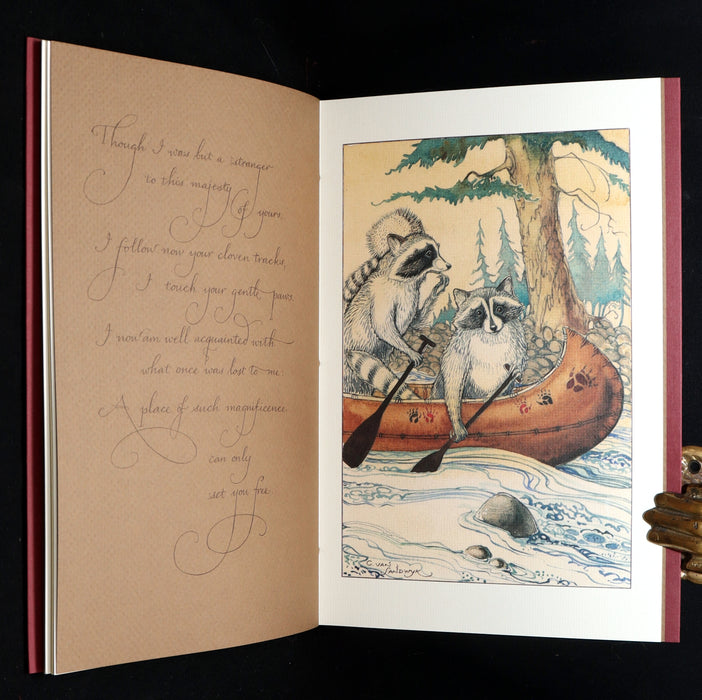 Though I was but a stranger
to this majesty of yours,
I follow now your cloven tracks,
I touch your gentle paws.
I now am well acquainted with
what once was lost to me:
A place of such magnificence
can only
set you free.
C. VAN
SANDWYK